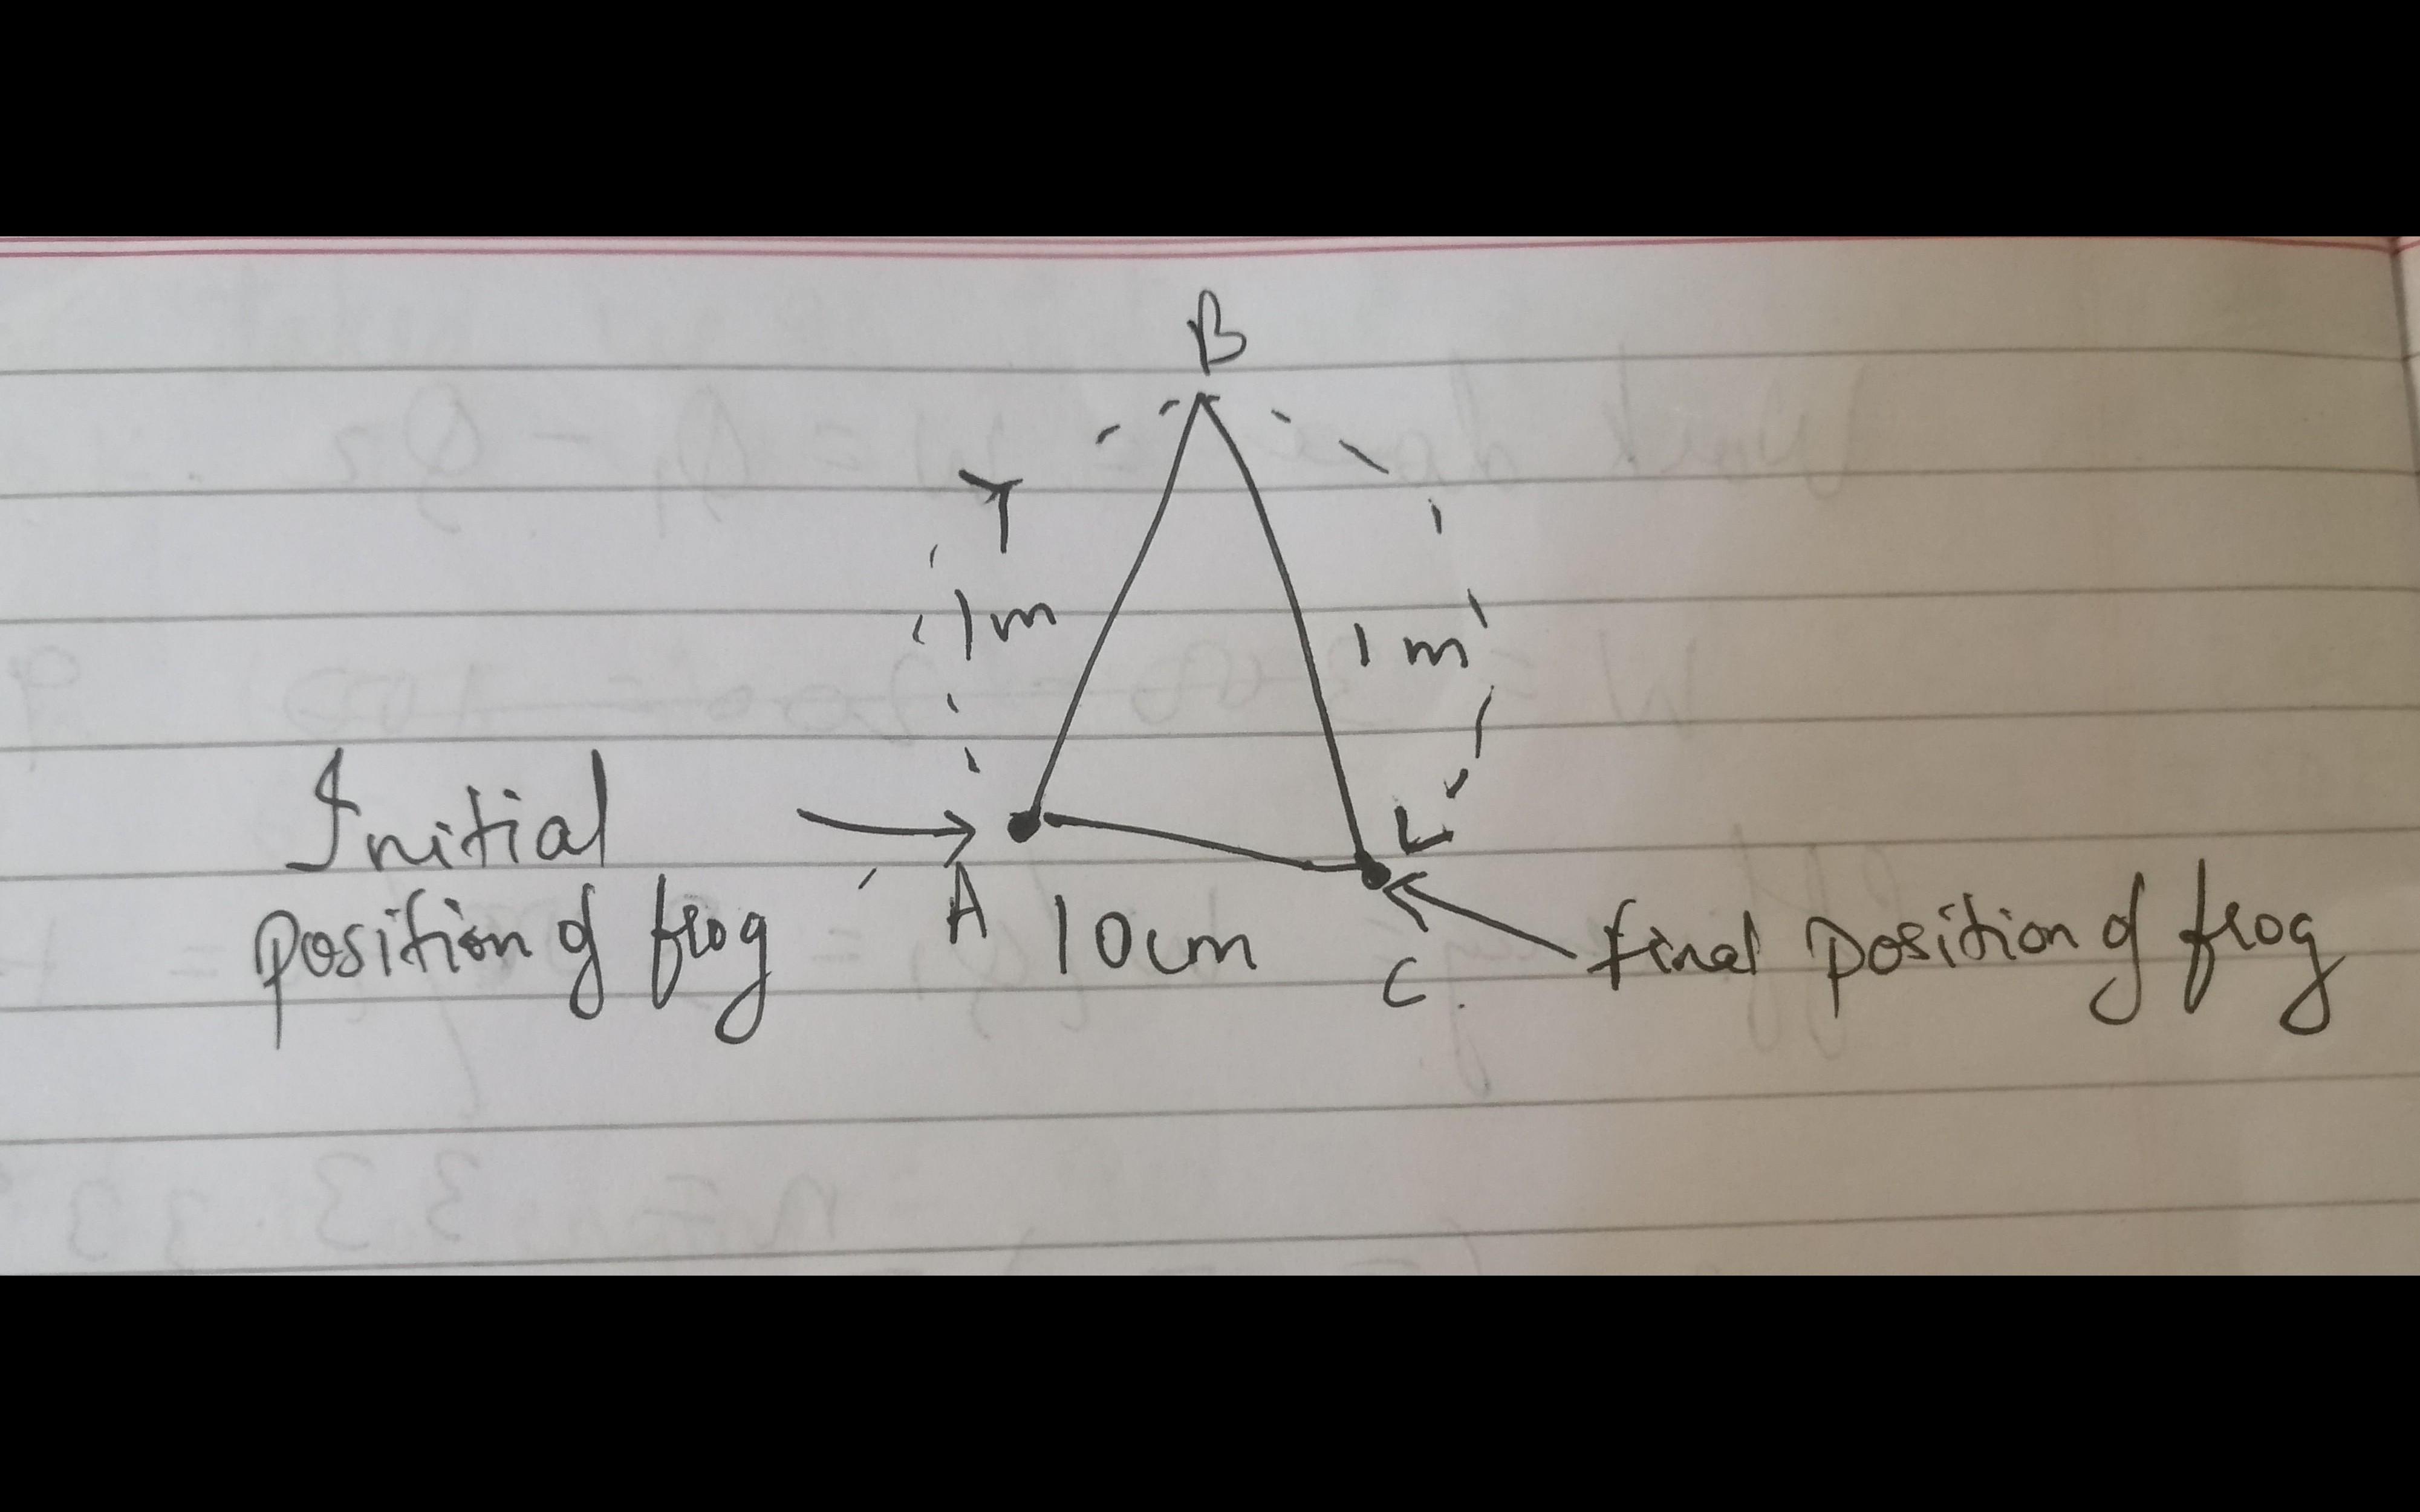 B
1m
1m
Initial
position of frog
A
10cm
C
final position of frog